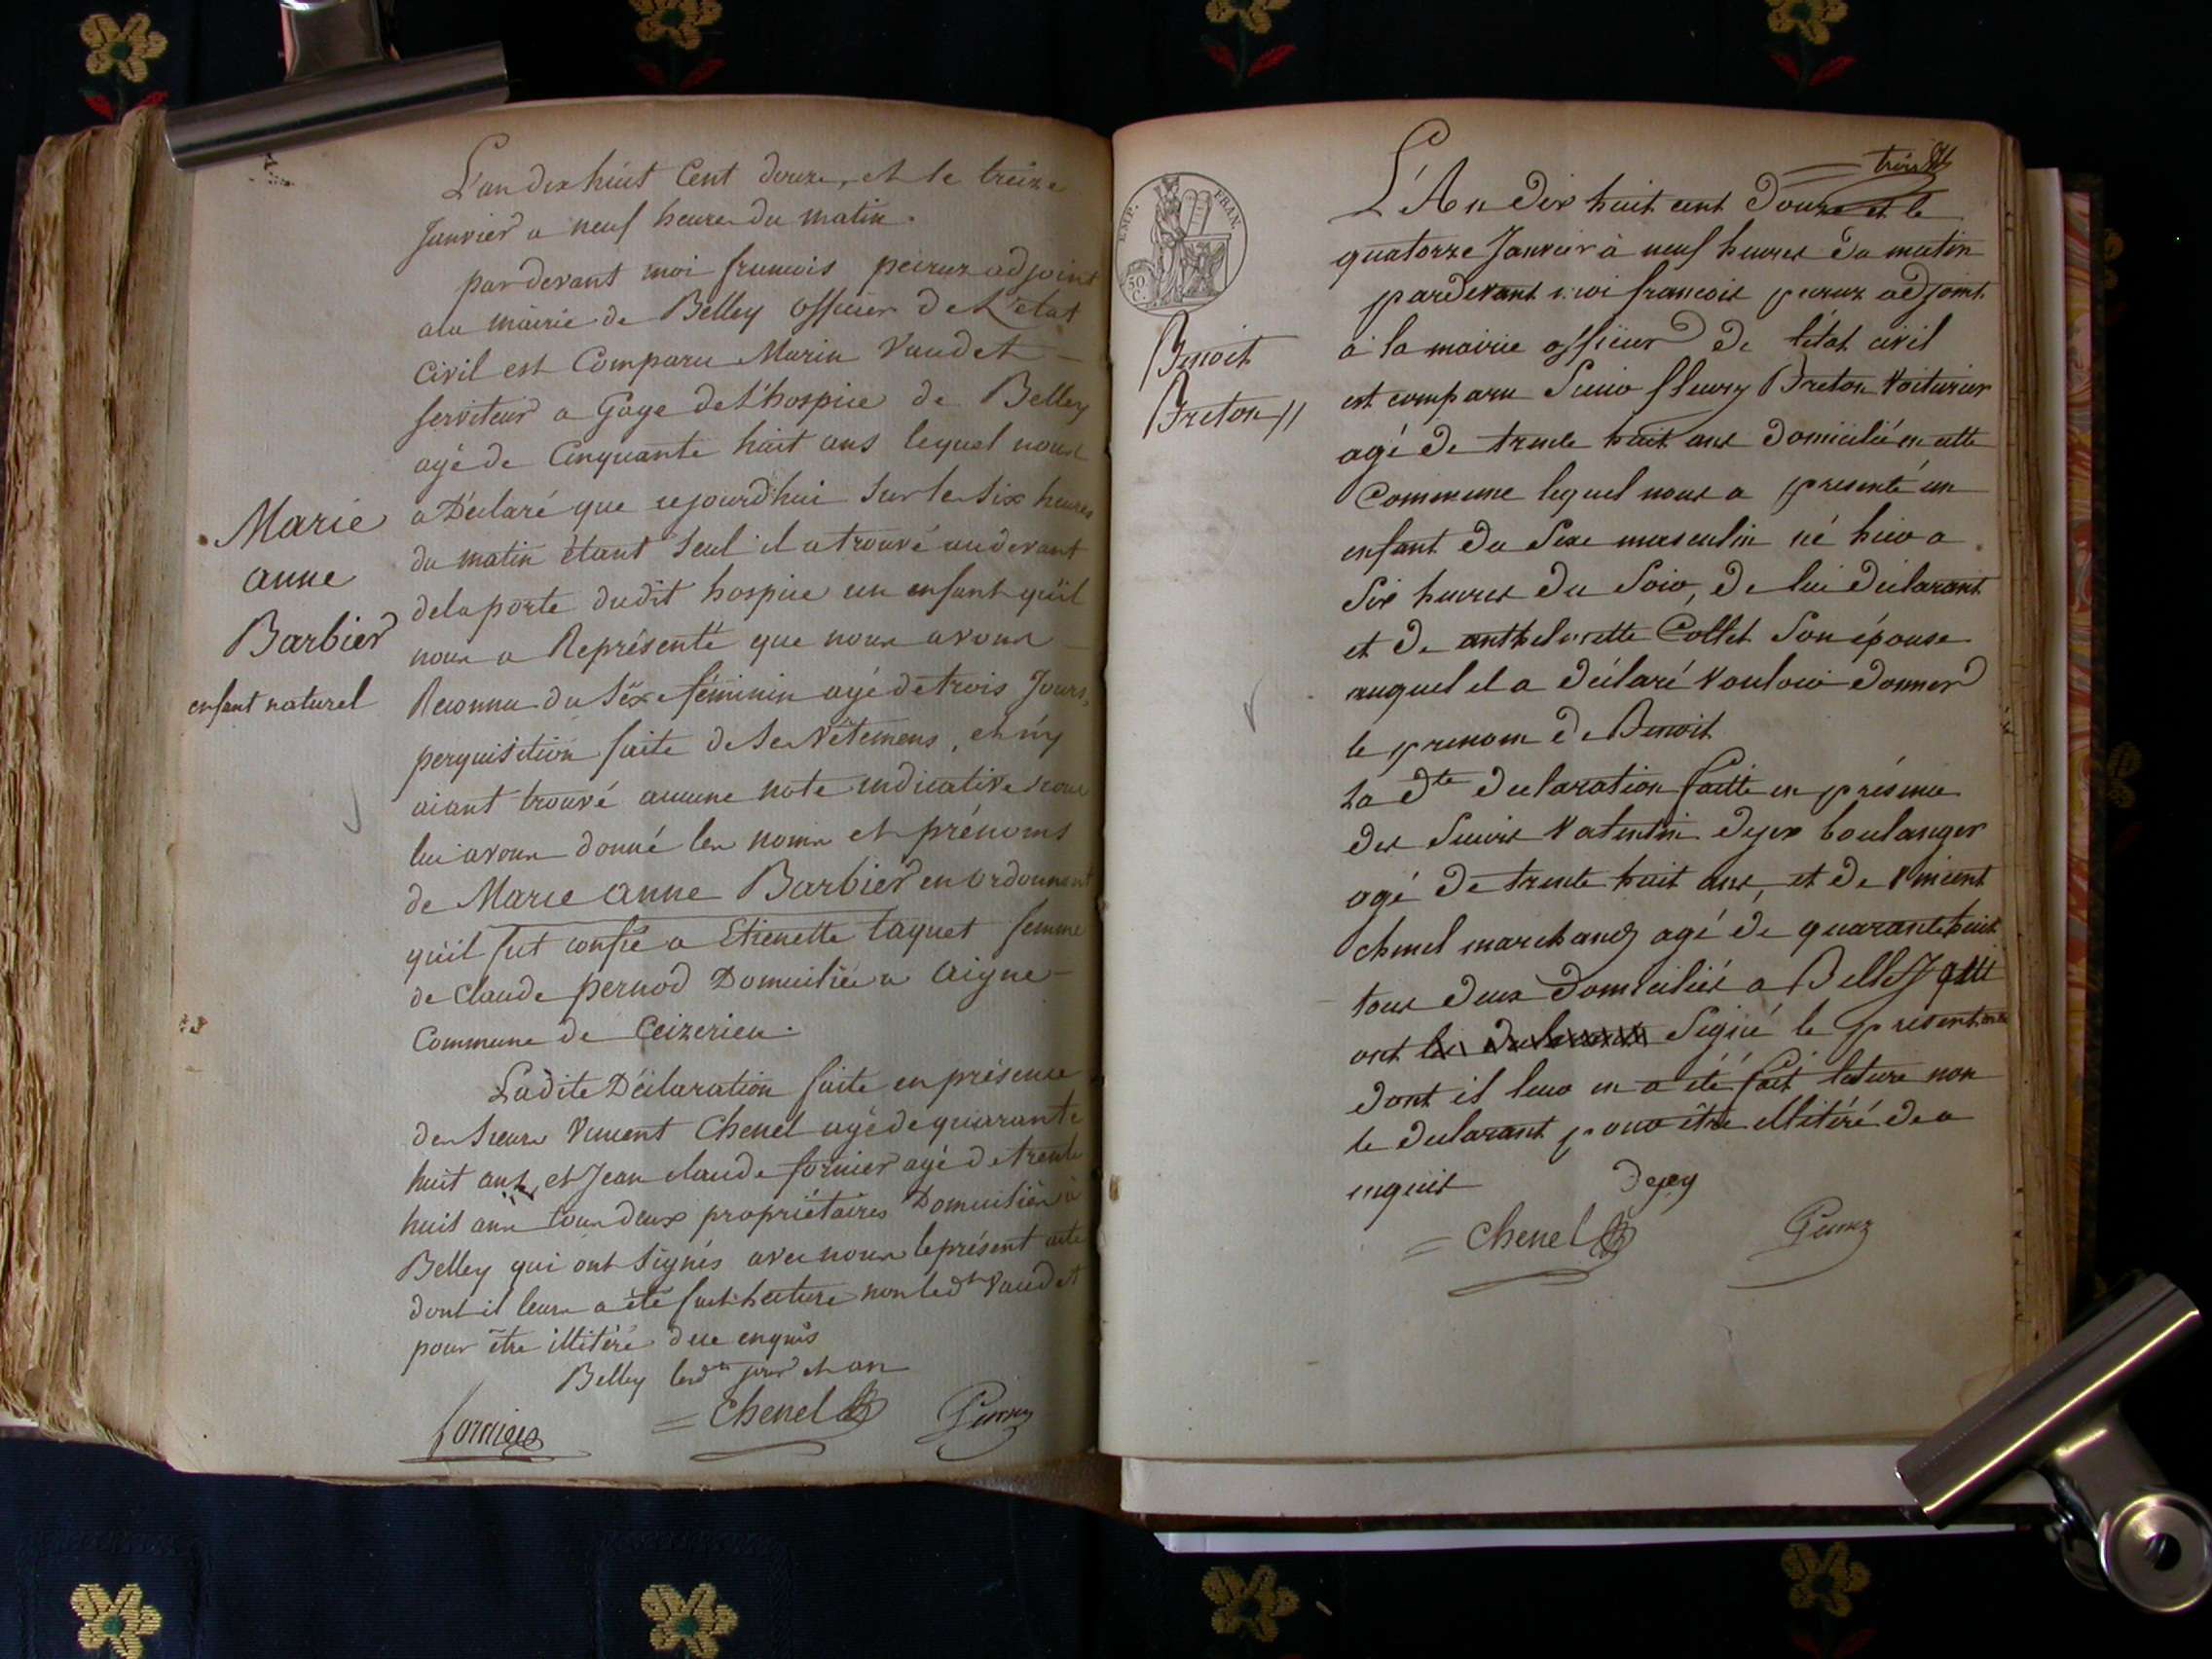 L'an dix huit Cent douze, et le treize
Janvier a neuf heures du matin.
pardevant moi francois peiruz adjoint
ala mairie de Belley officier de L'etat
Civil est Comparu Marin Vaudet
serviteur a Gage de l'hospice de Belley
agé de Cinquante huit ans lequel nous
a Déclaré que cejourd'hui sur les six heures
du matin étant seul il a trouvé audevant
dela porte dudit hospice un enfant qu'il
nous a Représenté que nous avons
Reconnu du séxe féminin agé de trois Jours,
perquisition faite de ses vêtemens, et n'y
aiant trouvé aucune note indicative nous
lui avons donné les noms et prénoms
de Marie anne Barbier en ordonnant
qu'il fut confié a Etienette taquet femme
de Claude pernod Domiciliée a aigne
Commune de Ceizerieu.
Ladite Déclaration faite en présence
des sieurs Vincent Chenel agé de quarante
huit ans, et Jean claude fornier agé de trente
huit ans tous deux propriétaires Domiciliés à
Belley qui ont signés avec nous le présent acte
dont il leurs a été fait lecture non led.t Vaudet
pour être illitéré de ce enquis
Belley lesd.ts jour et an
fornier
Chenel
Peiruz
Marie
anne
Barbier
enfant naturel
trois
EMP. FRAN.
50 C.
Benoit
Breton //
L'An dix huit cent Douze et le
quatorze Janvier à neuf heures du matin
pardevant moi francois peiruz adjoint
à la mairie officier de l'état civil
est comparu Sieur fleury Breton Voiturier
agé de trente huit ans domicilié en cette
Commune lequel nous a presenté un
enfant du Sexe masculin né hier a
Six heures du Soir, de lui déclarant
et de anthelmette Collet Son épouse
auquel il a déclaré Vouloir donner
le prenom de Benoit
La d.te declaration faitte en présence
des Sieurs Valentin dejex boulanger
agé de trente huit ans, et de Vincent
chenel marchand agé de quarantehuit
tous deux domiciliés a Belley qui
ont Signé le present acte
dont il leur en a été fait lecture non
le declarant pour être illitéré de ce
enquis
dejey
Chenel
Peiruz